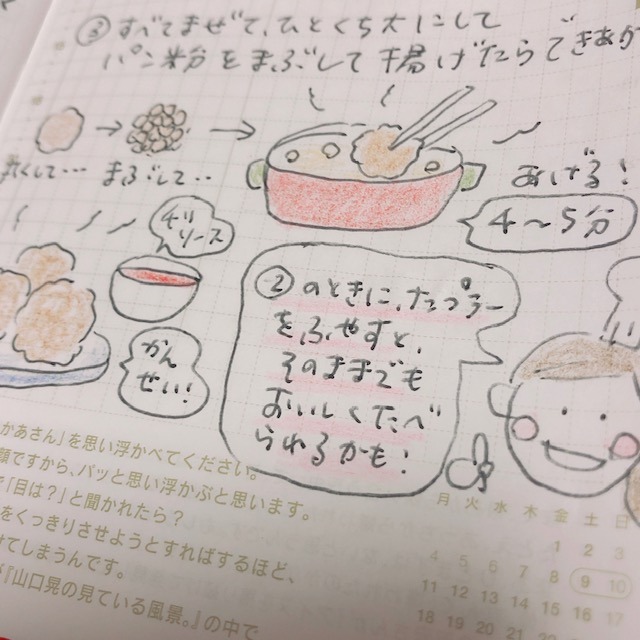 ③ すべてまぜて、ひとくち大にして
パン粉をまぶして揚げたらできあが
くして… まぶして‥
あげる!
4〜5分
チリ
ソース
かん
せい!
② のときに、たっぷろー
をふやすと、
そのままでも
おいしくたべ
られるかも!
かあさん」を思い浮かべてください。
顔ですから、パッと思い浮かぶと思います。
で「目は?」と聞かれたら?
をくっきりさせようとすればするほど、
てしまうんです。
『山口晃の見ている風景。』の中で
月 火 水 木 金 土 日
1 2 3
4 5 6 7 8 9 10
11 12 13 14 15 16 17
18 19 20 21